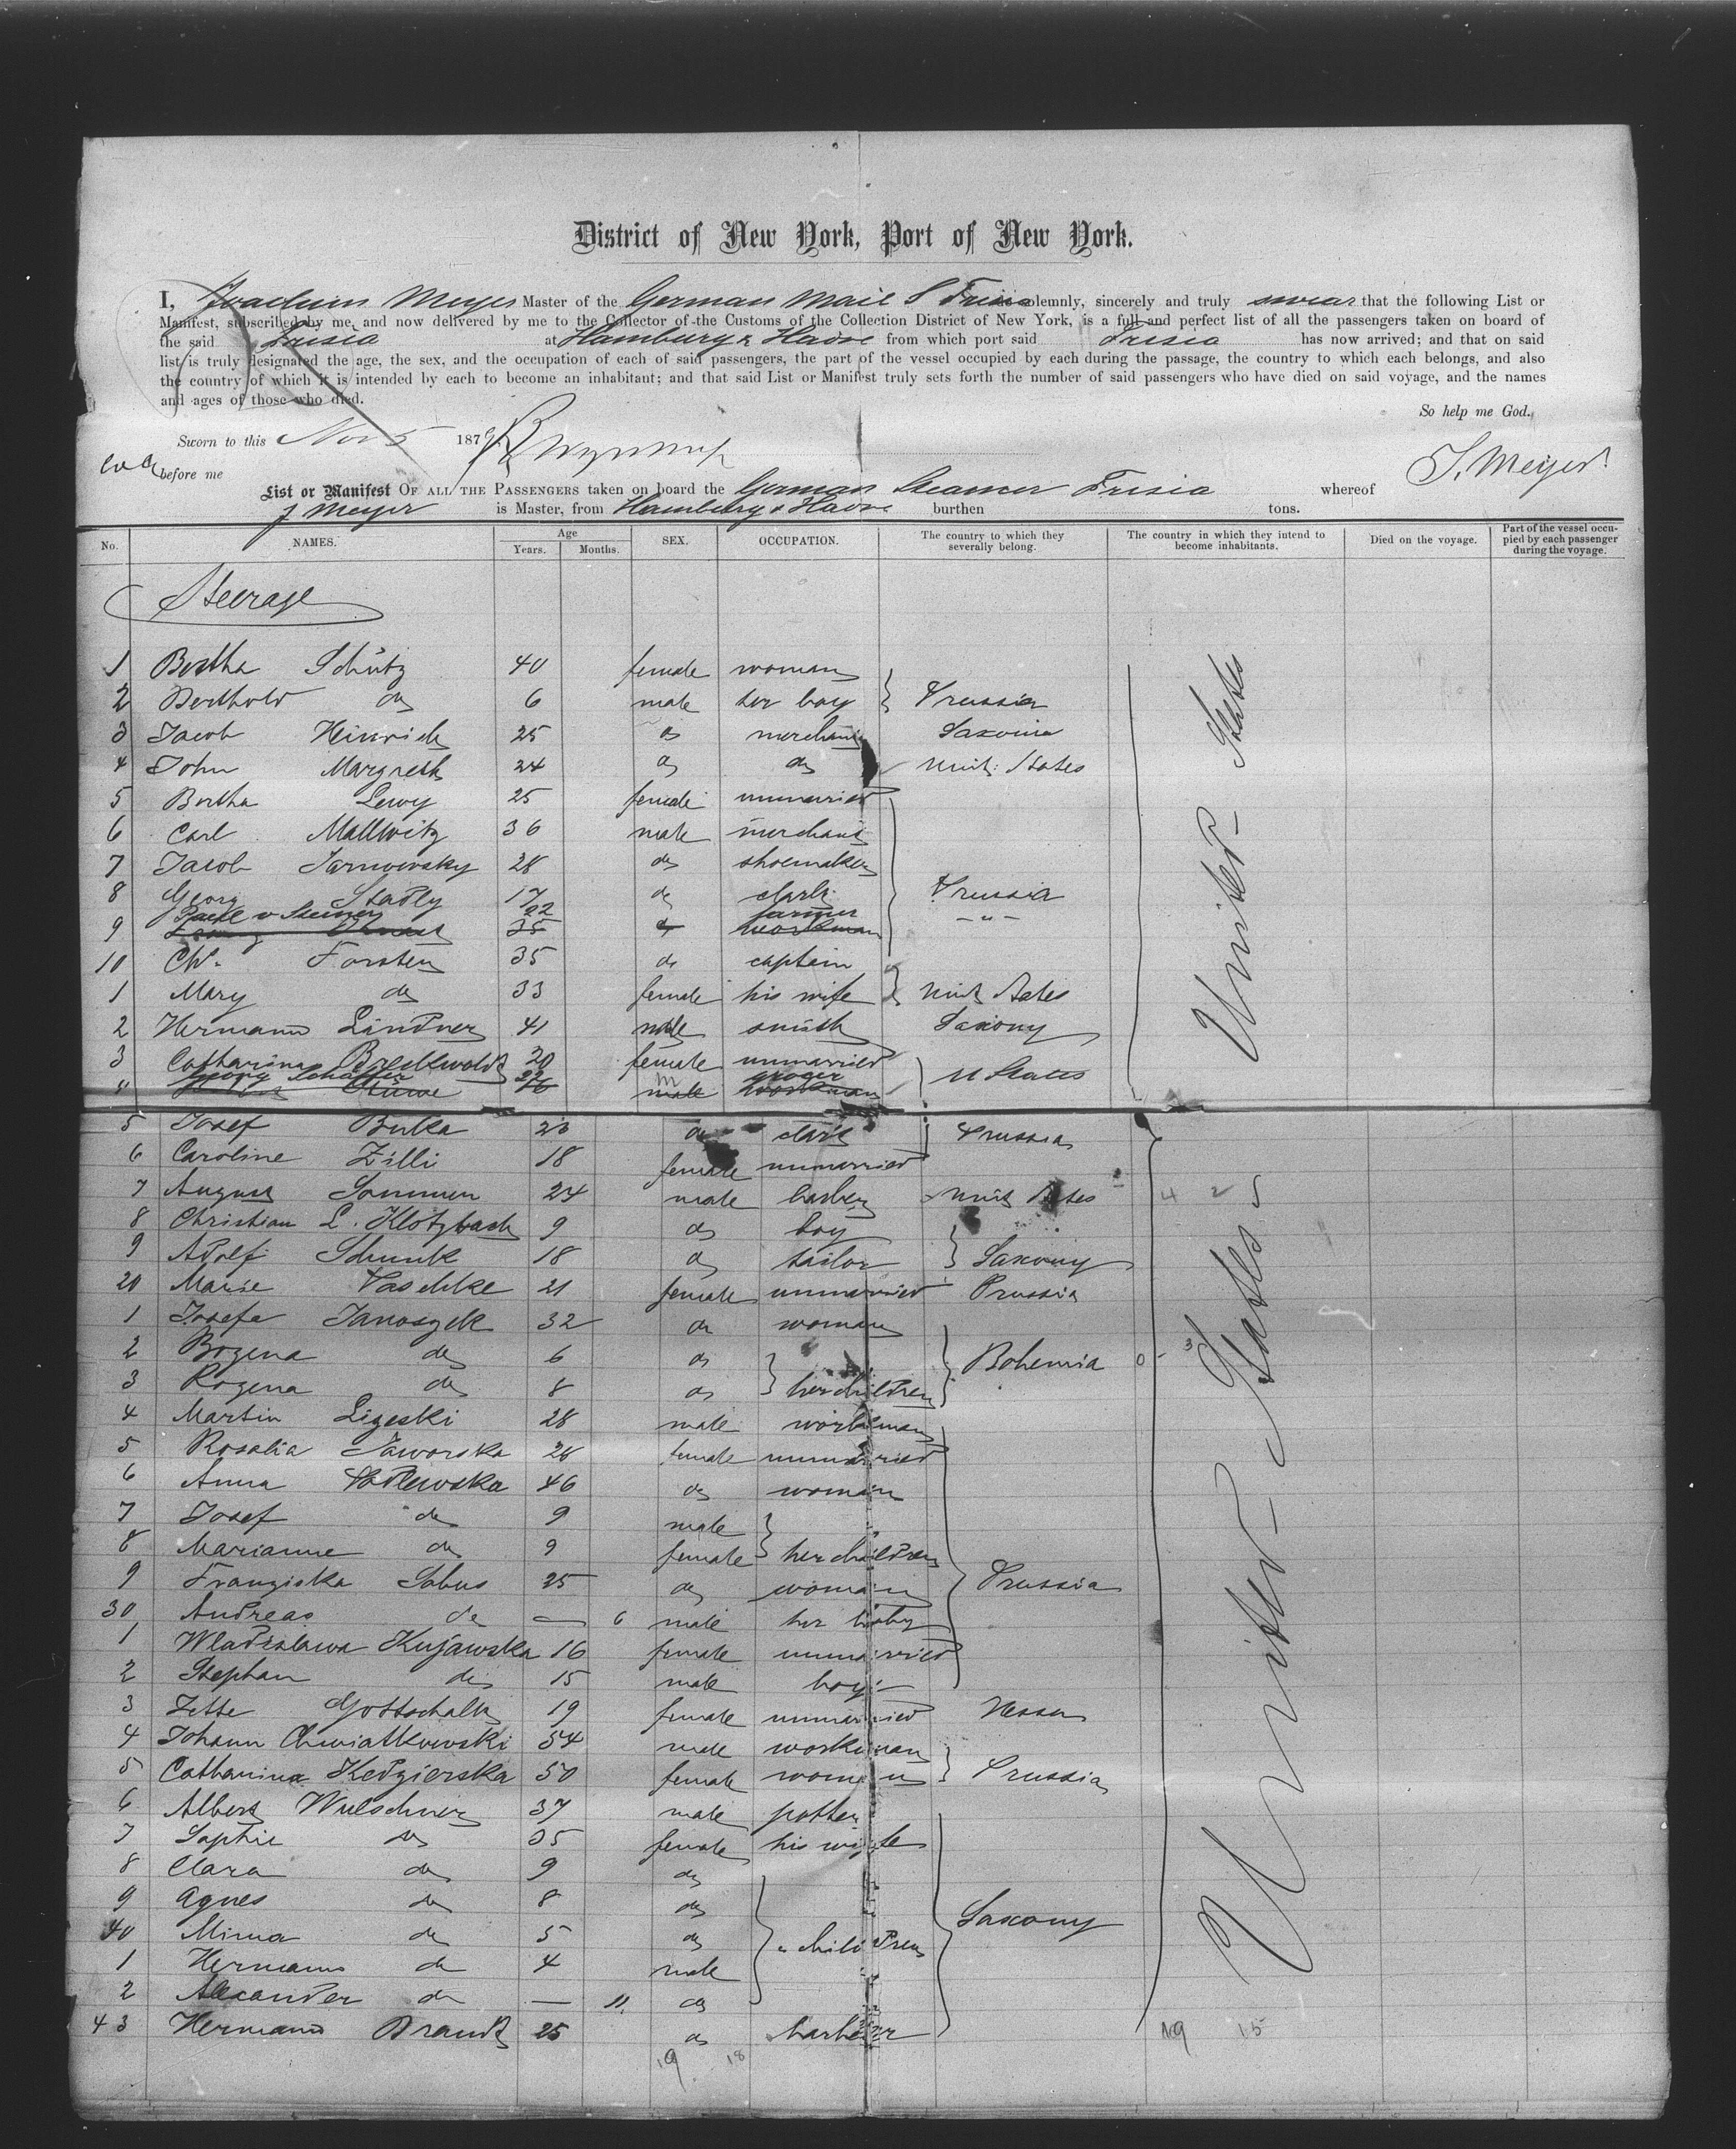 District of New York, Port of New York.
I, Joachim Meyer Master of the German Mail S Frisia solemnly, sincerely and truly swear that the following List or
Manifest, subscribed by me, and now delivered by me to the Collector of the Customs of the Collection District of New York, is a full and perfect list of all the passengers taken on board of
the said Frisia at Hamburg & Havre from which port said Frisia has now arrived; and that on said
list is truly designated the age, the sex, and the occupation of each of said passengers, the part of the vessel occupied by each during the passage, the country to which each belongs, and also
the country of which it is intended by each to become an inhabitant; and that said List or Manifest truly sets forth the number of said passengers who have died on said voyage, and the names
and ages of those who died.
So help me God.
Sworn to this Nov 5 1879
before me
J. Meyer
List or Manifest OF ALL THE PASSENGERS taken on board the German Steamer Frisia whereof
J Meyer is Master, from Hamburg & Havre burthen tons.
No. NAMES. Age Years. Months. SEX. OCCUPATION. The country to which they severally belong. The country in which they intend to become inhabitants. Died on the voyage. Part of the vessel occupied by each passenger during the voyage.
Steerage
1 Bertha Schütz 40 female woman
2 Berthold do 6 male her boy Prussia
3 Jacob Heinrich 25 do merchant Saxonia
4 John Margreth 24 do do Unit. States
5 Bertha Lewy 25 female unmarried
6 Carl Mallwitz 36 male merchant
7 Jacob Tarnowsky 28 do shoemaker
8 Georg Stadly 17 do clark Prussia
9 v Steiner 22 farmer - " -
35 workman
10 Chr. Forsten 35 do captain
1 Mary do 33 female his wife Unit States
2 Hermann Lindner 41 male smith Saxony
3 Catharina 20 female unmarried U States
Georg Schäffer 22 m grocer
4 Stüwe 16 male workman
5 Josef Buka 23 do clark Prussia
6 Caroline Zilli 18 female unmarried
7 August Sommer 24 male barber Unit States 4 2
8 Christian L. Klotzbach 9 do boy
9 Adolf Schunk 18 do tailor Saxony
20 Marie Paschke 21 female unmarried Prussia
1 Josefa Janoszek 32 do woman
2 Bozena do 6 do Bohemia
3 Rozena do 8 do her children
4 Martin Lizeski 28 male workman
5 Rosalia Jaworska 28 female unmarried
6 Anna 46 do woman
7 Josef do 9 male
8 Marianne do 9 female her children
9 Franziska Sobus 25 do woman Prussia
30 Andreas do — 6 male her baby
1 Wladislawa Kujawska 16 female unmarried
2 Stephan do 15 male boy
3 Jette Gottschalk 19 female unmarried Hessen
4 Johann Chwiatkowski 54 male workman
5 Catharina Kedzierska 50 female woman Prussia
6 Albert Wulschner 37 male potter
7 Sophie do 35 female his wife
8 Clara do 9 do
9 Agnes do 8 do Saxony
40 Minna do 5 do " children
1 Hermann do 4 male
2 Alexander do — 11 do
43 Hermann Brandt 25 do barber
United States
United States
19 18
19 15